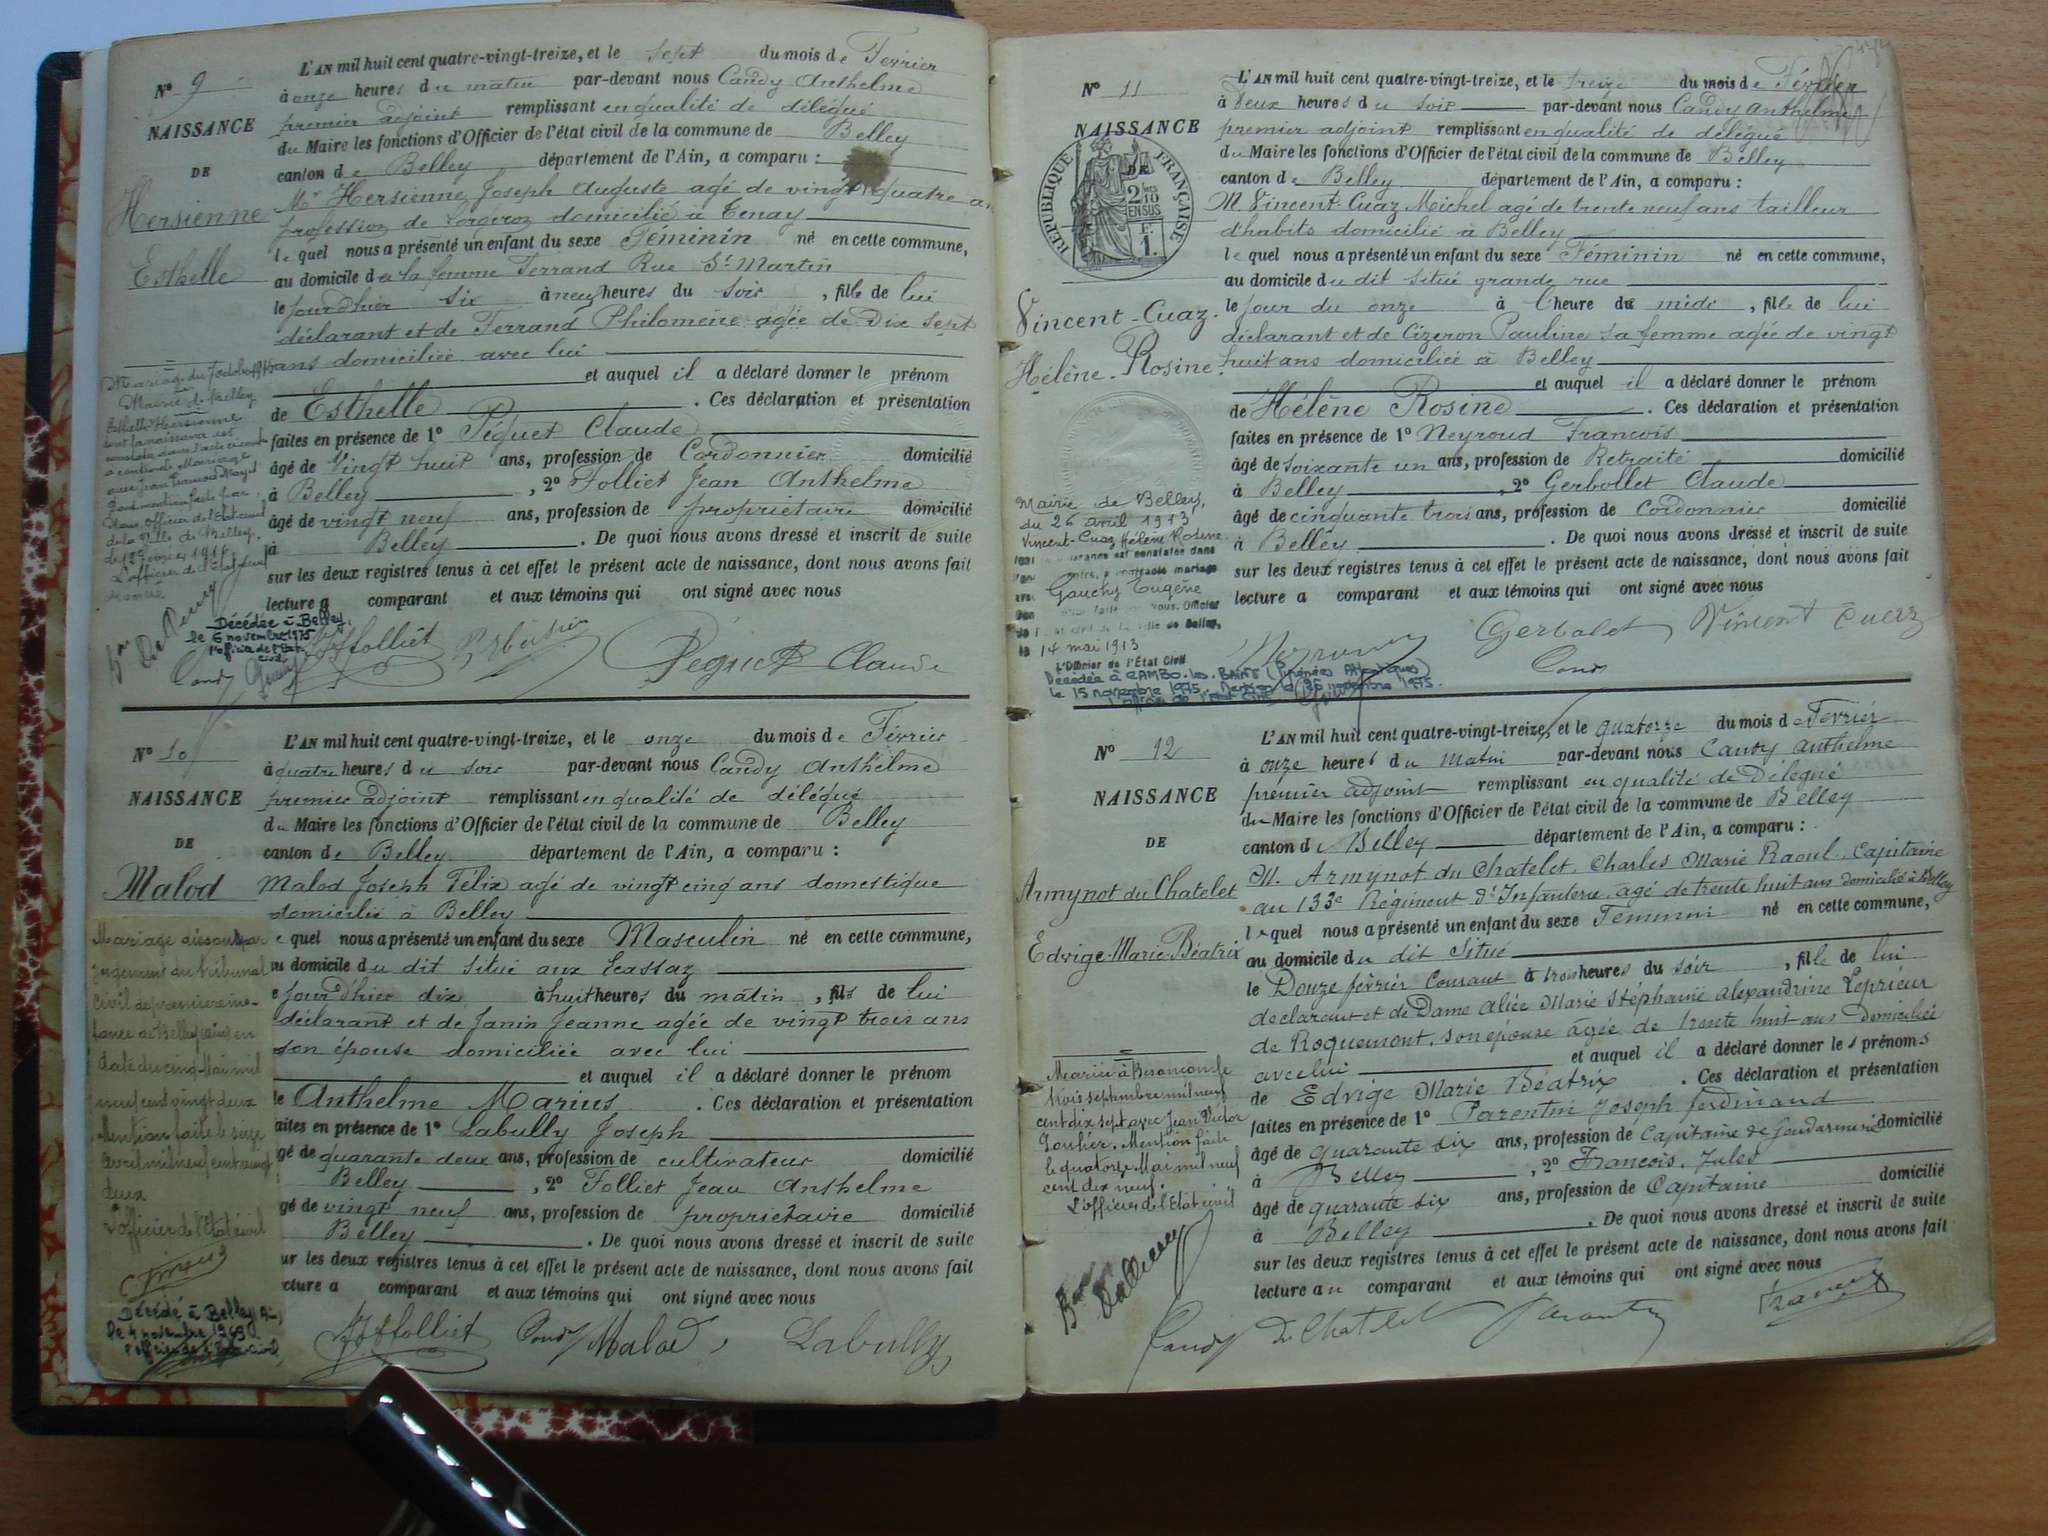 Nº 9
NAISSANCE
DE
Hersienne
Esthelle
L'AN mil huit cent quatre-vingt-treize, et le sept du mois de Février
à onze heures du matin par-devant nous Candy Anthelme
premier adjoint remplissant en qualité de délégué
du Maire les fonctions d'Officier de l'état civil de la commune de Belley
canton de Belley département de l'Ain, a comparu :
Mr Hersienne Joseph Auguste agé de vingt quatre an
profession de domicilié à Tenay
lequel nous a présenté un enfant du sexe Féminin né en cette commune,
au domicile de la femme Ferrand Rue St Martin
le jour d'hier six à neuf heures du soir, fille de lui
déclarant et de Ferrand Philomène agée de Dix Sept
ans domiciliée avec lui
et auquel il a déclaré donner le prénom
de Esthelle. Ces déclaration et présentation
faites en présence de 1º Péguet Claude
âgé de Vingt huit ans, profession de Cordonnier domicilié
à Belley, 2º Folliet Jean Anthelme
âgé de vingt neuf ans, profession de propriétaire domicilié
à Belley. De quoi nous avons dressé et inscrit de suite
sur les deux registres tenus à cet effet le présent acte de naissance, dont nous avons fait
lecture a comparant et aux témoins qui ont signé avec nous
Mairie de Belley
Esthelle Hersienne
dont la naissance est
constatée dans l'acte ci-contre
a contracté Mariage
avec Jean François
Dont mention faite par
Nous, Officier de l'Etat civil
de la Ville de Belley,
L'officier de l'Etat civil
Décédée à Belley,
le 6 novembre 1975
l'officier de l'Etat
Civil
Candy Folliet Péguet Claude
Nº 10
NAISSANCE
DE
Malod
L'AN mil huit cent quatre-vingt-treize, et le onze du mois de Février
à quatre heures du soir par-devant nous Candy Anthelme
premier adjoint remplissant en qualité de délégué
du Maire les fonctions d'Officier de l'état civil de la commune de Belley
canton de Belley département de l'Ain, a comparu :
Malod Joseph Félix agé de vingt cinq ans domestique
domicilié à Belley
e quel nous a présenté un enfant du sexe Masculin né en cette commune,
u domicile du dit situé aux Ecassaz
e jour d'hier dix à huit heures du matin, fils de lui
déclarant et de Janin Jeanne agée de vingt trois ans
son épouse domiciliée avec lui
et auquel il a déclaré donner le prénom
de Anthelme Marius. Ces déclaration et présentation
aites en présence de 1º Labully Joseph
gé de quarante deux ans, profession de cultivateur domicilié
Belley, 2º Folliet Jean Anthelme
gé de vingt neuf ans, profession de propriétaire domicilié
Belley. De quoi nous avons dressé et inscrit de suite
ur les deux registres tenus à cet effet le présent acte de naissance, dont nous avons fait
cture a comparant et aux témoins qui ont signé avec nous
Mariage dissous par
jugement du tribunal
civil de première ins-
tance de Belley en
date du cinq Mai mil
neuf cent vingt deux
Mention faite le seize
Avril mil neuf cent vingt
deux
L'officier de l'Etat civil
Décédé à Belley Ain,
le 4 novembre 1969
l'officier de l'Etat Civil
Folliet Candy Malod Labully
Nº 11
NAISSANCE
DE
RÉPUBLIQUE FRANÇAISE
2/10
EN SUS
1.
Vincent-Cuaz
Hélène Rosine
L'AN mil huit cent quatre-vingt-treize, et le treize du mois de Février
à Deux heures du soir par-devant nous Candy Anthelme
premier adjoint remplissant en qualité de délégué
du Maire les fonctions d'Officier de l'état civil de la commune de Belley
canton de Belley département de l'Ain, a comparu :
M. Vincent-Cuaz Michel agé de trente neuf ans tailleur
d'habits domicilié à Belley
lequel nous a présenté un enfant du sexe Féminin né en cette commune,
au domicile du dit situé grande rue
le jour du onze à l'heure de midi, fille de lui
déclarant et de Cizeron Pauline sa femme agée de vingt
huit ans domiciliée à Belley
et auquel il a déclaré donner le prénom
de Hélène Rosine. Ces déclaration et présentation
faites en présence de 1º Neyroud François
âgé de soixante un ans, profession de Retraité domicilié
à Belley, 2º Gerbollet Claude
âgé de cinquante trois ans, profession de cordonnier domicilié
à Belley. De quoi nous avons dressé et inscrit de suite
sur les deux registres tenus à cet effet le présent acte de naissance, dont nous avons fait
lecture a comparant et aux témoins qui ont signé avec nous
Mairie de Belley,
du 26 avril 1913
Vincent-Cuaz Hélène Rosine
naissance est constatée dans
contracté mariage
Gauchy Eugène
Officier
de l'état civil de la ville de Belley,
le 14 mai 1913
L'Officier de l'État Civil
Décédée à CAMBO-les-BAINS (Pyrénées Atlantiques)
le 15 novembre 1975. Mention le 26 novembre 1975.
l'officier de l'Etat Civil
Gerbolet Vincent Cuaz
Candy
Nº 12
NAISSANCE
DE
Armynot du Chatelet
Edvige-Marie-Béatrix
L'AN mil huit cent quatre-vingt-treize, et le quatorze du mois de Février
à onze heures du Matin par-devant nous Candy Anthelme
premier adjoint remplissant en qualité de Délégué
du Maire les fonctions d'Officier de l'état civil de la commune de Belley
canton de Belley département de l'Ain, a comparu :
M. Armynot du Chatelet, Charles Marie Raoul, Capitaine
au 133e Régiment d'Infanterie, agé de trente huit ans domicilié à Belley
lequel nous a présenté un enfant du sexe Féminin né en cette commune,
au domicile du dit Situé
le Douze février Courant à trois heures du soir, fille de lui
déclarant et de Dame Alice Marie Stéphanie Alexandrine Leprieur
de Roquemont, son épouse âgée de trente huit ans Domiciliée
avec lui et auquel il a déclaré donner les prénoms
de Edvige Marie Béatrix. Ces déclaration et présentation
faites en présence de 1º Parentin Joseph Ferdinand
âgé de quarante six ans, profession de Capitaine de Gendarmerie domicilié
à Belley, 2º François, Jules
âgé de quarante six ans, profession de Capitaine domicilié
à Belley. De quoi nous avons dressé et inscrit de suite
sur les deux registres tenus à cet effet le présent acte de naissance, dont nous avons fait
lecture au comparant et aux témoins qui ont signé avec nous
Mariée à Besançon le
trois septembre mil neuf
cent dix sept avec Jean Victor
Mention faite
le quatorze Mai mil neuf
cent dix neuf.
L'officier de l'Etat civil
Candy DuChatelet Parentin